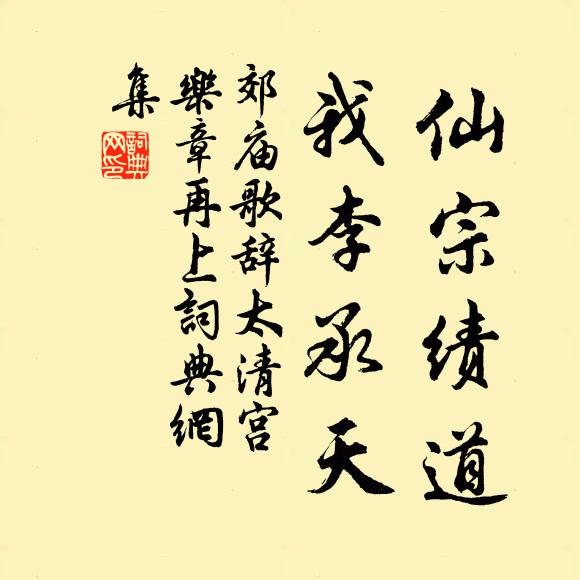 仙宗绩道
我李承天
郊庙歌辞太清宫
樂章再上詞典網
集
詞典
网印